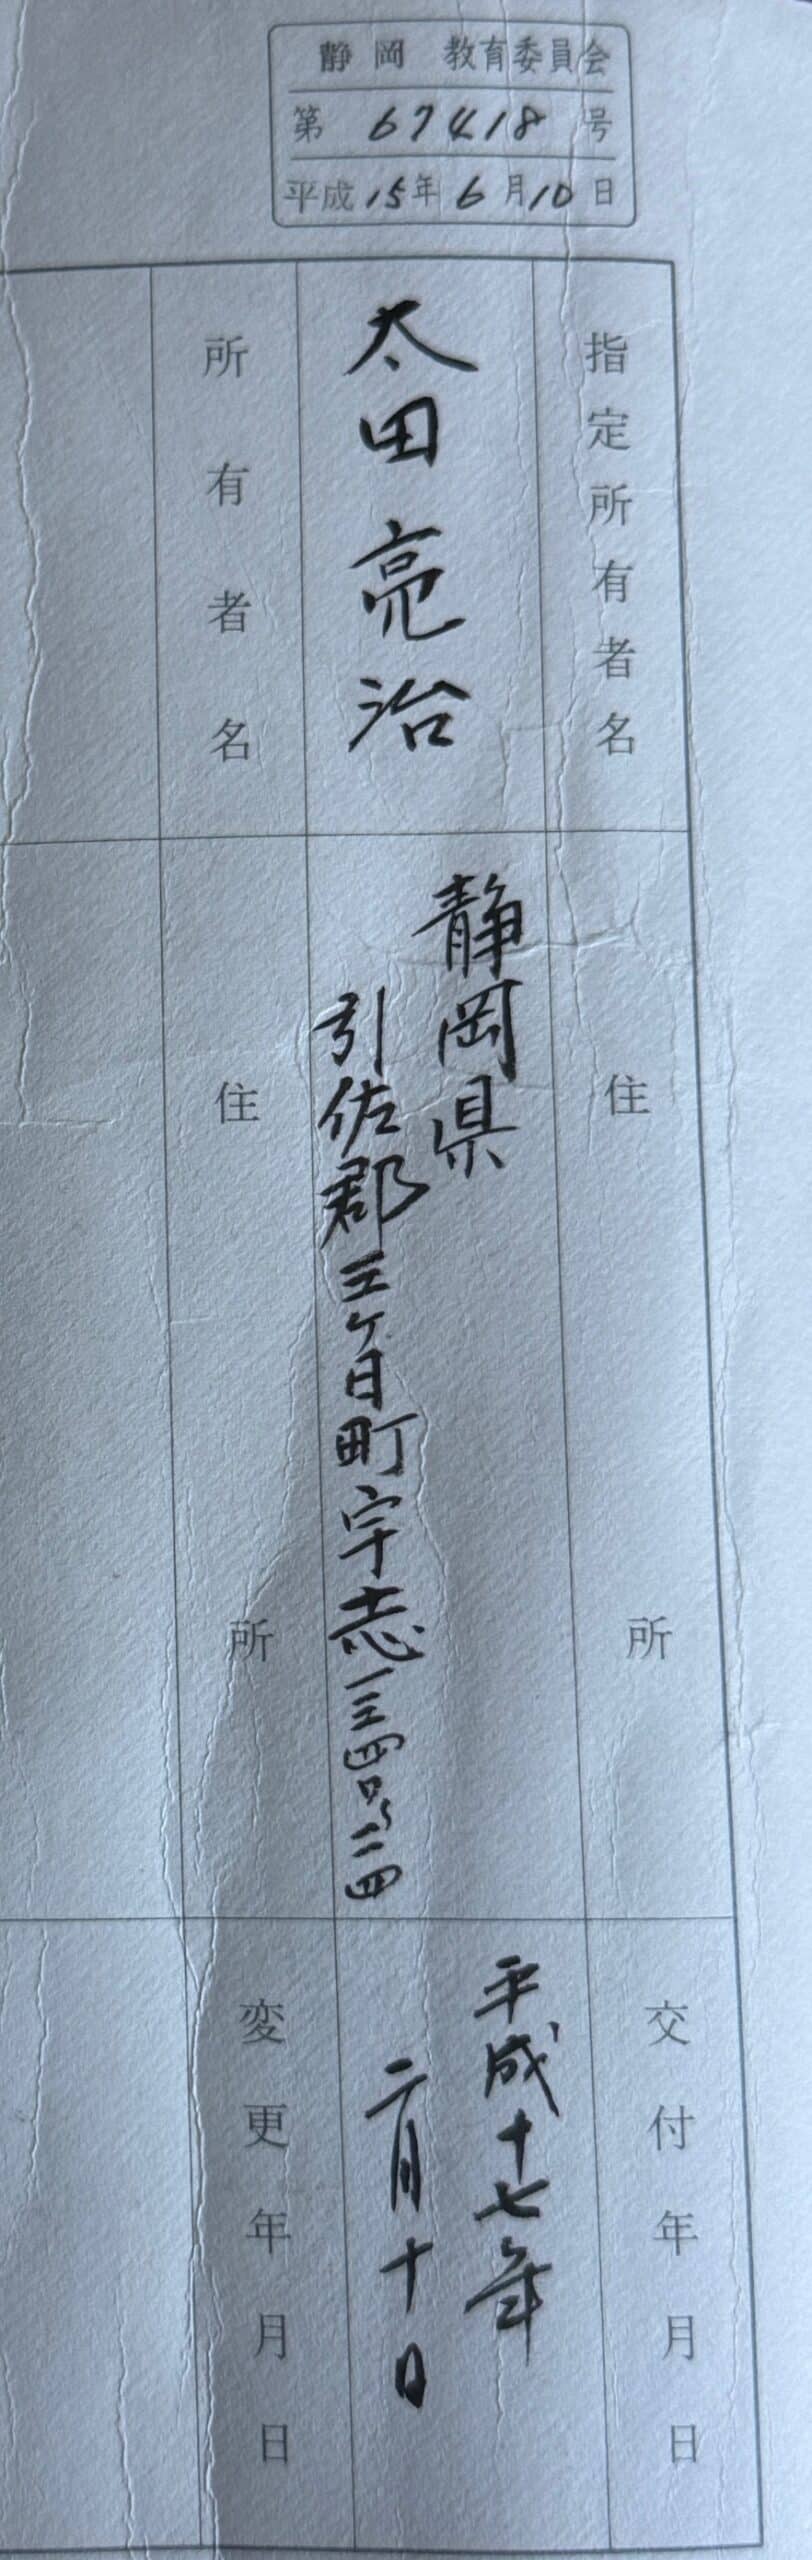 静岡 教育委員会
第 67418 号
平成15年6月10日
指定所有者名
太田亮治
所有者名
住所
静岡県
引佐郡三ヶ日町宇志一三四〇〜二四
住所
交付年月日
平成十七年
二月十日
変更年月日